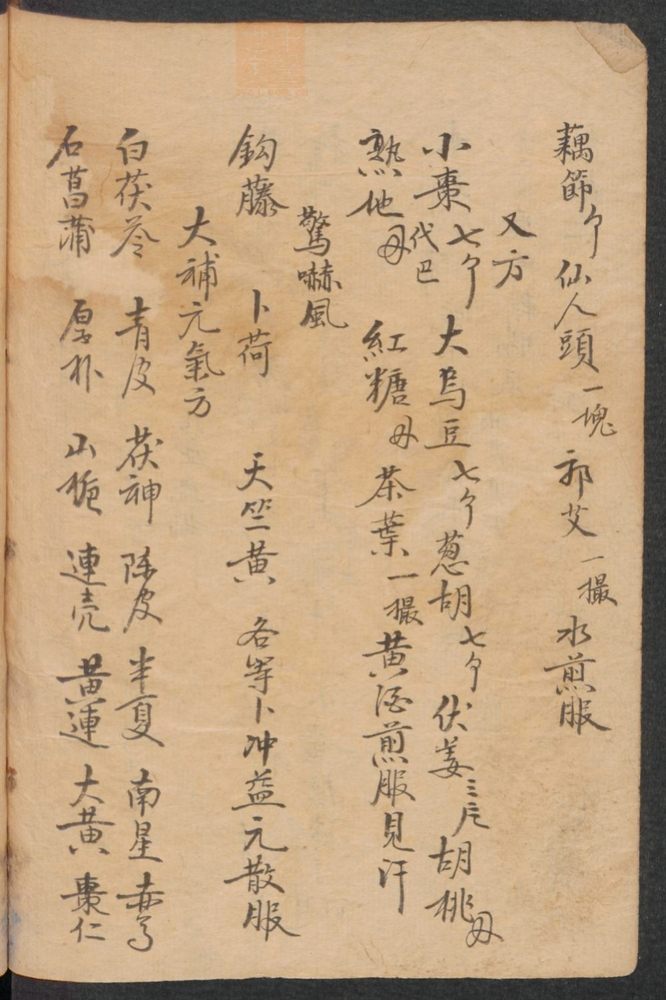 藕節个仙人頭一塊祁艾一撮水煎服
又方
小棗七个代巴大烏豆七个葱胡七个伏姜三片胡桃
熟地 紅糖 茶葉一撮黄酒煎服見汗
驚嚇風
鈎藤 卜荷 天竺黄 各等卜冲益元散服
大補元氣方
白茯苓 青皮 茯神 陈皮 半夏 南星 赤芍
石菖蒲 厚朴 山栀 連壳 黄連 大黄 棗仁